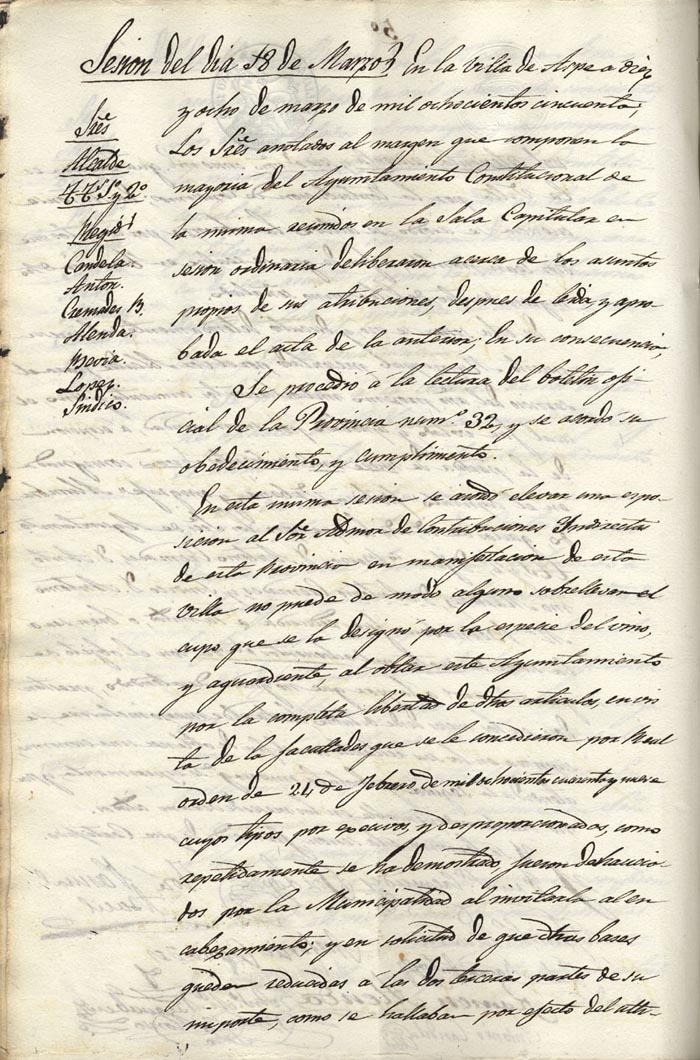 Sesion del dia 18 de Marzo} En la villa de Aspe a diez
y ocho de marzo de mil ochocientos cincuenta;
Los Sres anotados al margen que componen la
mayoria del Ayuntamiento Constitucional de
la misma reunidos en la Sala Capitular en
sesion ordinaria deliberaron acerca de los asuntos
propios de sus atribuciones, despues de leida y apro-
bada el acta de la anterior; En su consecuencia,
Sres
Alcalde
TT 1º y 2º
Regid.s
Candela.
Anton.
Cremades B.
Almda.
Lopez.
Sindico.
Se procedió á la lectura del boletin ofi-
cial de la Provincia num.º 32, y se acordó su
obedecimiento, y cumplimento.
En esta misma sesion se acordó elevar una espo-
sicion al Sor Admor de Contribuciones Indirectas
de esta Provincia en manifestacion de esta
villa no puede de modo alguno sobrellevar el
cupo que se la designó por la especie del vino,
y aguardiente, al obtar este Ayuntamiento
por la completa libertad de dhos articulos, en vis
ta de la facultades que se le concedieron por Real
orden de 24 de febrero de mil ochocientos cuarenta y nueve
cuyos tipos por excesivos, y desproporcionados, como
repetidamente se ha demostrado fueron
dos por la Municipalidad al invitarla al en-
cabezamiento; y en solicitud de que dhas bases
queden reducidas á las dos terceras partes de su
importe, como se hallaban por efecto del ulti-